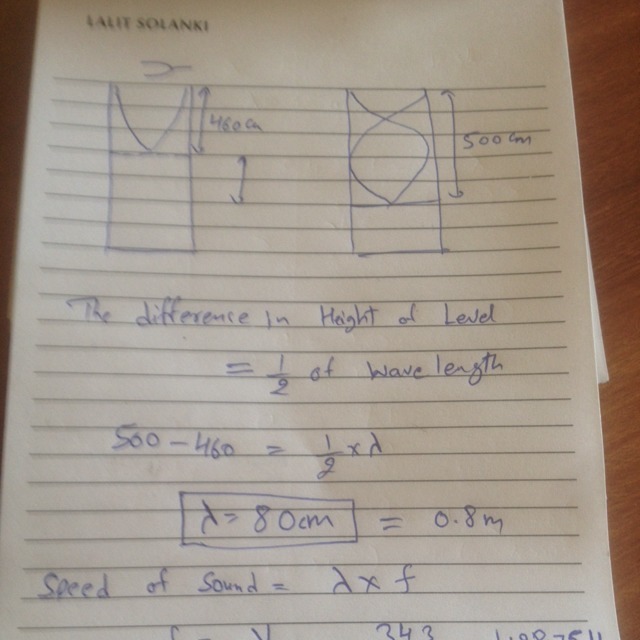 LALIT SOLANKI
460cm
500cm
The difference in Height of Level
= 1/2 of wavelength
500 - 460 = 1/2 x λ
λ = 80cm = 0.8m
Speed of Sound = λ x f
343